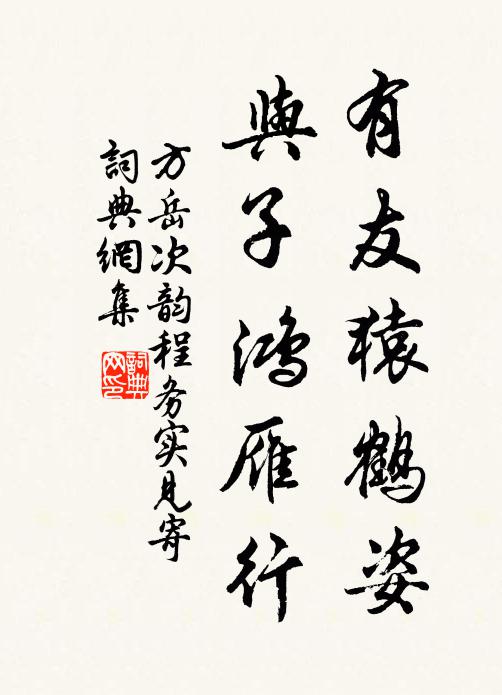 有友猿鶴姿
與子鴻雁行
方岳次韵程务实見寄
詞典網集
詞典网印